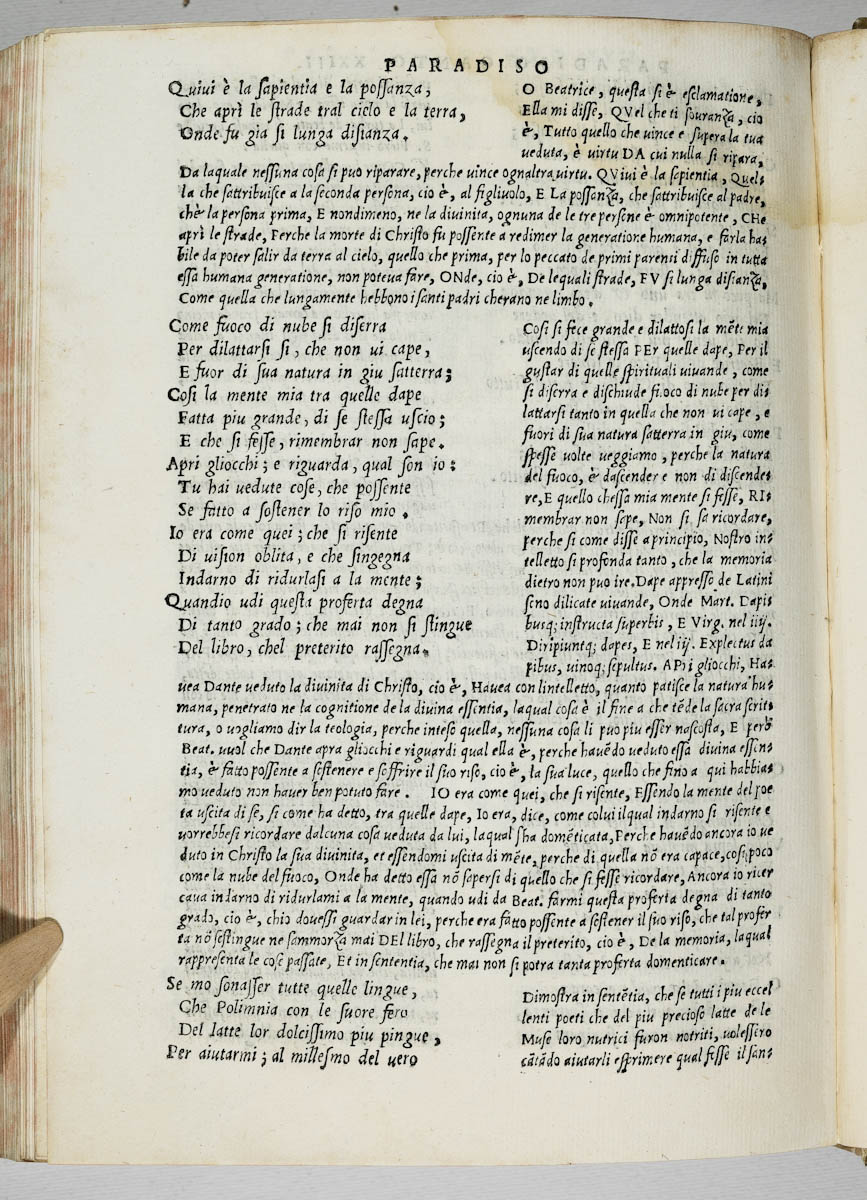 PARADISO
Quiui è la sapientia e la possanza,
Che aprì le strade tral cielo e la terra,
Onde fu gia si lunga disianza.
O Beatrice, questa si è esclamatione,
Ella mi disse, QVel che ti souranza, cio
è, Tutto quello che vince e supera la tua
veduta, è virtu DA cui nulla si ripara,
Da laquale nessuna cosa si puo riparare, perche vince ognaltra virtu. QVivi è la sapientia, Quel-
la che sattribuisce a la seconda persona, cio è, al figliuolo, E La possanza, che sattribuisce al padre,
chè la persona prima, E nondimeno, ne la divinita, ognuna de le tre persone è omnipotente, CHe
aprì le strade, Perche la morte di Christo fu possente a redimer la generatione humana, e farla ha-
bile da poter salir da terra al cielo, quello che prima, per lo peccato de primi parenti diffuso in tutta
essa humana generatione, non poteva fare, ONde, cio è, De lequali strade, FV si lunga disianza,
Come quella che lungamente hebbono i santi padri cherano ne limbo.
Come fuoco di nube si diserra
Per dilattarsi si, che non ui cape,
E fuor di sua natura in giu satterra;
Cosi la mente mia tra quelle dape
Fatta piu grande, di se stessa uscio;
E che si fesse, rimembrar non sape.
Apri gliocchi; e riguarda, qual son io:
Tu hai uedute cose, che possente
Se fatto a sostener lo riso mio.
Io era come quei; che si risente
Di uision oblita, e che singegna
Indarno di ridurlasi a la mente;
Quandio udi questa proferta degna
Di tanto grado; che mai non si stingue
Del libro, chel preterito rassegna.
Cosi si fece grande e dilattosi la mẽte mia
uscendo di se stessa PEr quelle dape, Per il
gustar di quelle spirituali vivande, come
si diserra e dischiude fuoco di nube per di-
lattarsi tanto in quella che non ui cape, e
fuori di sua natura satterra in giu, come
spesse volte veggiamo, perche la natura
del fuoco, è dascendere e non di discende-
re, E quello chessa mia mente si fesse, RI-
membrar non sape, Non si sa ricordare,
perche si come disse a principio, Nostro in-
telletto si profonda tanto, che la memoria
dietro non puo ire. Dape appresso de Latini
sono dilicate vivande, Onde Mart. Dapis
busq; instructa superbis, E Virg. nel iiij.
Diripiuntq; dapes, E nel iij. Explectus da
pibus, uinoq; sepultus. APri gliocchi, Ha-
uea Dante veduto la divinita di Christo, cio è, Havea con lintelletto, quanto patisce la natura hu-
mana, penetrato ne la cognitione de la divina essentia, laqual cosa è il fine a che tẽde la sacra scrit-
tura, o uogliamo dir la teologia, perche inteso quella, nessuna cosa li puo piu esser nascosta, E però
Beat. vuol che Dante apra gliocchi e riguardi qual ella è, perche havẽdo veduto essa divina essen-
tia, è fatto possente a sostenere e soffrire il suo riso, cio è, la sua luce, quello che fino a qui habbia-
mo veduto non haver ben potuto fare. IO era come quei, che si risente, Essendo la mente del poe
ta uscita di se, si come ha detto, tra quelle dape, Io era, dice, come colui ilqual indarno si risente e
vorrebbesi ricordare dalcuna cosa veduta da lui, laqual sha domẽticata, Perche havẽdo ancora io ve
duto in Christo la sua divinita, et essendomi uscita di mẽte, perche di quella nõ era capace, cosi poco
come la nube del fuoco, Onde ha detto essa nõ sapersi di quello che si fesse ricordare, Ancora io ricer
cava indarno di ridurlami a la mente, quando udi da Beat. farmi questa proferta degna di tanto
grado, cio è, chio dovessi guardar in lei, perche era fatto possente a sostener il suo riso, che tal profer
ta nõ sestingue ne sammorza mai DEl libro, che rassegna il preterito, cio è, De la memoria, laqual
rappresenta le cose passate, Et in sententia, che mai non si potra tanta proferta domenticare.
Se mo sonasser tutte quelle lingue,
Che Polimnia con le suore fero
Del latte lor dolcissimo piu pingue,
Per aiutarmi; al millesmo del uero
Dimostra in sentẽtia, che se tutti i piu eccel
lenti poeti che del piu precioso latte de le
Muse loro nutrici furon notriti, volessero
cãtãdo aiutarli esprimere qual fesse il san-